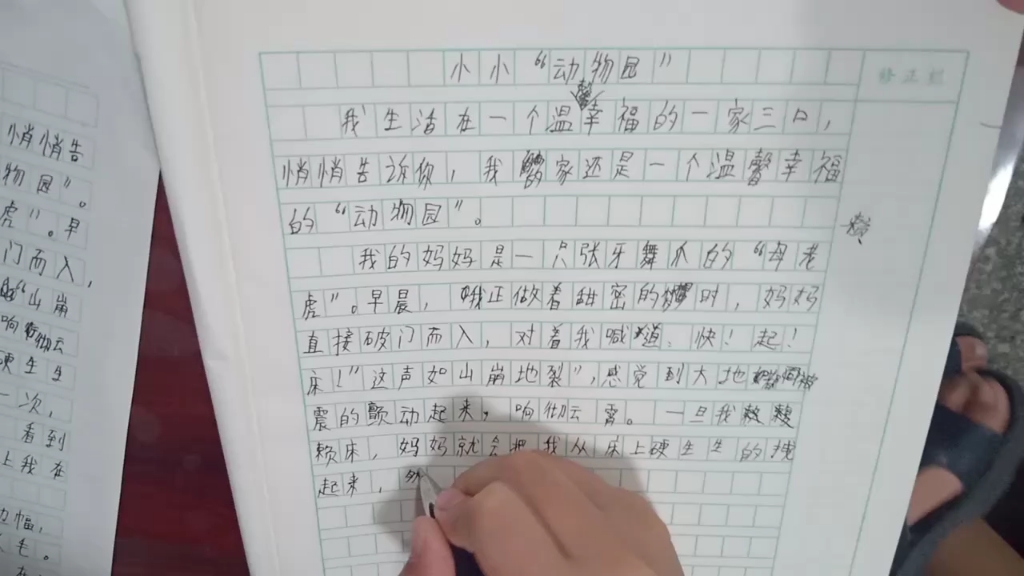 小小“动物园”
我生活在一个温馨幸福的一家三口，
悄悄告诉你，我家还是一个温馨幸福
的“动物园”。
我的妈妈是一只张牙舞爪的“母老
虎”。早晨，我正做着甜密的梦时，妈妈
直接破门而入，对着我喊道：快！起！
床！”这声如山崩地裂”，感觉到大地都被
震的颤动起来，响彻云霄。一旦我
赖床，妈妈就会把我从床上硬生生的拽
起来，
悄悄告
物园”。
虎”。早
门而入，
山崩
响彻云
硬生生
一次，
看到
上我在
边幅，
毛。
修正栏